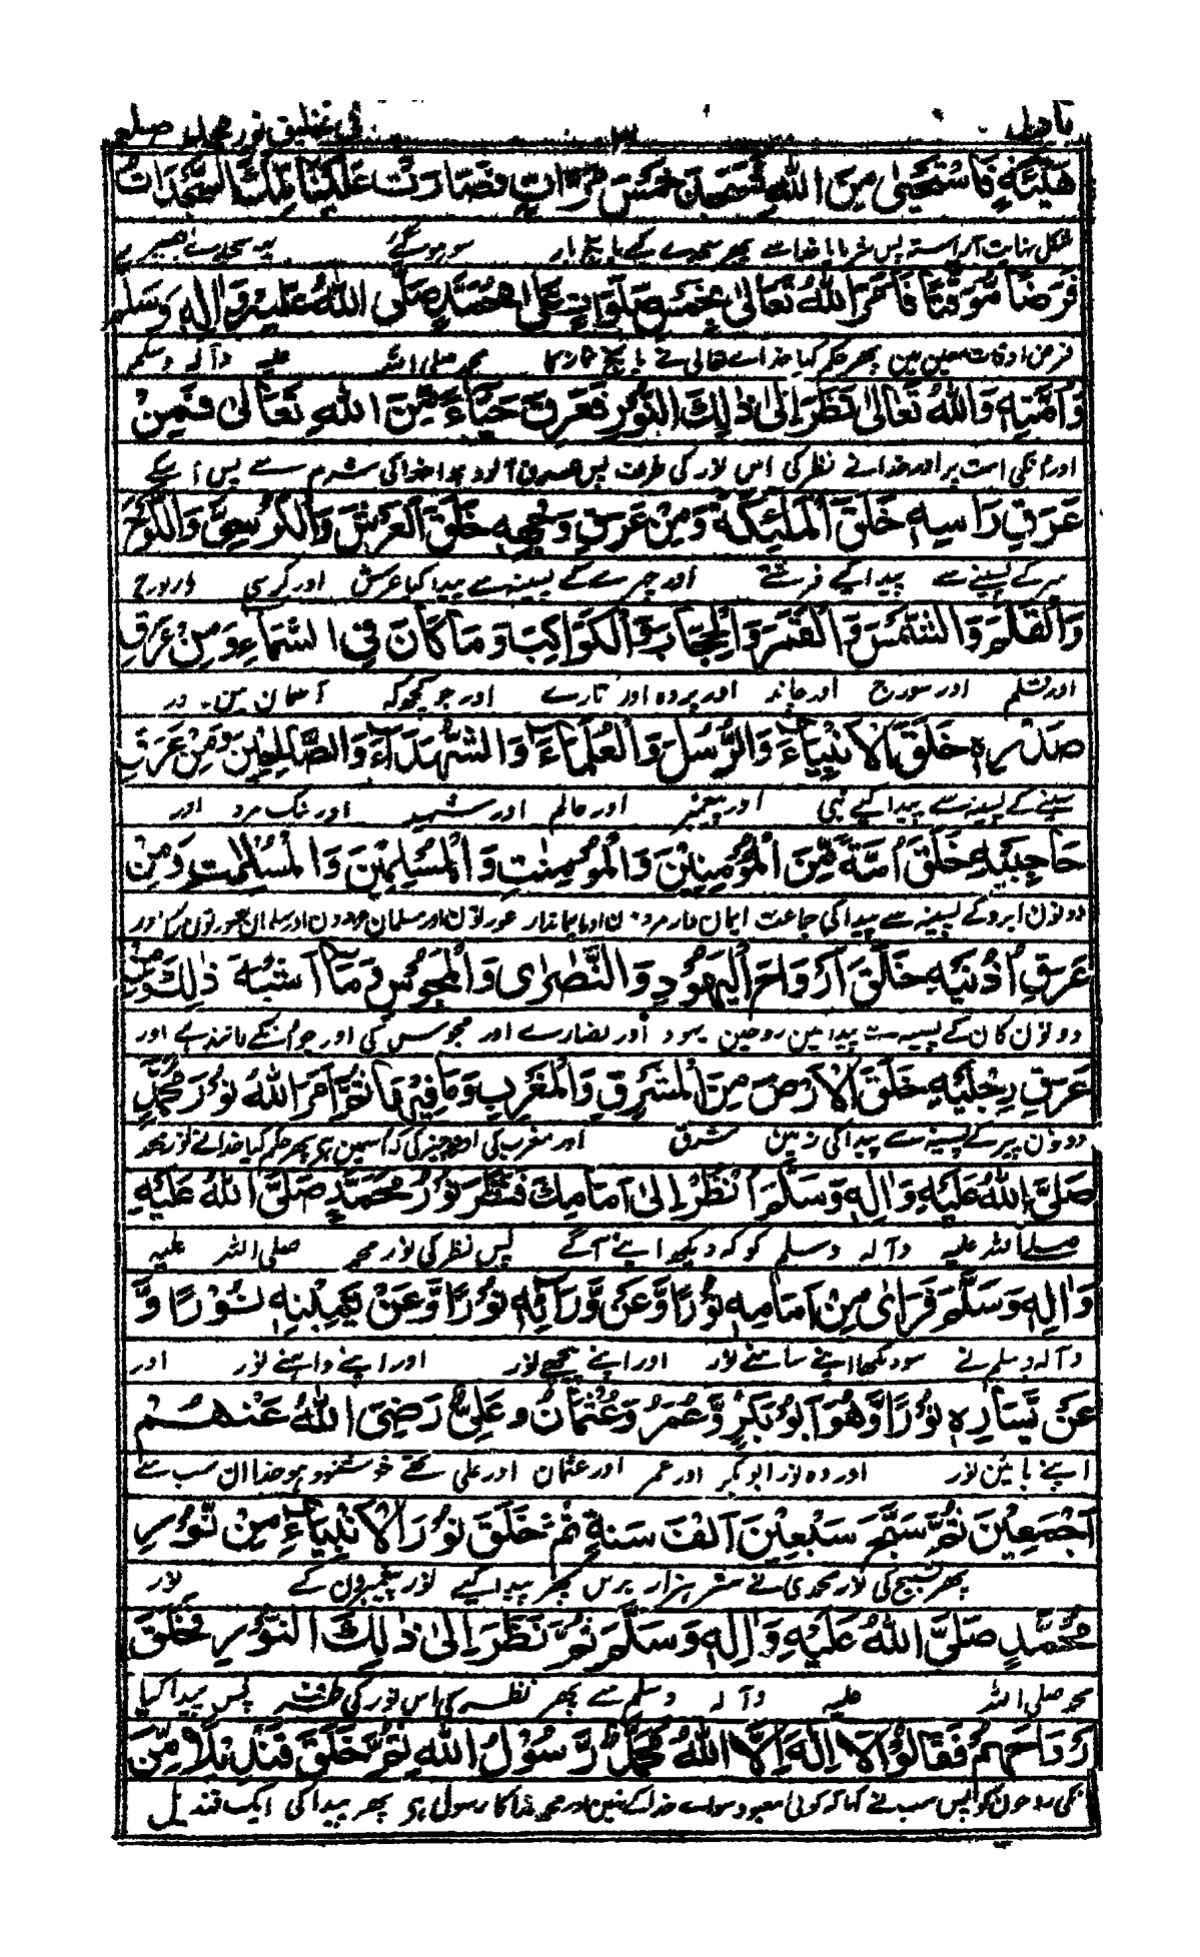 باب اول ٣ فی تخلیق نور محمد صلعم
هَيْئَةٍ فَاسْتَحْيٰى مِنَ اللّٰهِ فَسَجَدَ خَمْسَ مَرَّاتٍ فَصَارَتْ عَلَيْنَا تِلْكَ السَّجَدَاتُ
شکل نہایت آراستہ پس شرمایا خدا سے پھر سجدے کیے پانچ بار سو ہو گئے یہ سجدے
فَرْضًا مُّوَقَّتًا فَأَمَرَ اللّٰهُ تَعَالٰى بِخَمْسِ صَلَوَاتٍ عَلٰى مُحَمَّدٍ صَلَّى اللّٰهُ عَلَيْهِ وَاٰلِهٖ وَسَلَّمَ
فرض اوقات معین مین پھر حکم کیا خداے تعالی نے پانچ نماز کا محمد صلی اللہ علیہ وآلہ وسلم
وَاُمَّتِهٖ وَاللّٰهُ تَعَالٰى نَظَرَ اِلٰى ذٰلِكَ النُّوْرِ فَعَرِقَ حَيَاءً مِّنَ اللّٰهِ تَعَالٰى فَمِنْ
اور انکی امت پر اور خدا نے نظر کی اس نور کی طرف پس عرق آلود ہوا خدا کی شرم سے پس اسکے
عَرَقِ رَاْسِهٖ خَلَقَ الْمَلٰٓئِكَةَ وَمِنْ عَرَقِ وَجْهِهٖ خَلَقَ الْعَرْشَ وَالْكُرْسِيَّ وَاللَّوْحَ
سر کے پسینے سے پیدا کیے فرشتے اور چہرے کے پسینہ سے پیدا کیا عرش اور کرسی اور لوح
وَالْقَلَمَ وَالشَّمْسَ وَالْقَمَرَ وَالْحِجَابَ وَالْكَوَاكِبَ وَمَا كَانَ فِي السَّمَاءِ وَمِنْ عَرَقِ
اور قلم اور سورج اور چاند اور پردہ اور تارے اور جو کچھ کہ آسمان مین ہے اور
صَدْرِهٖ خَلَقَ الْاَنْبِيَاءَ وَالرُّسُلَ وَالْعُلَمَاءَ وَالشُّهَدَاءَ وَالصَّالِحِيْنَ وَمِنْ عَرَقِ
سینے کے پسینہ سے پیدا کیے نبی اور پیغمبر اور عالم اور شہید اور نیک مرد اور
حَاجِبَيْهِ خَلَقَ اُمَّةً مِّنَ الْمُؤْمِنِيْنَ وَالْمُؤْمِنٰتِ وَالْمُسْلِمِيْنَ وَالْمُسْلِمَاتِ وَمِنْ
دونون ابرو کے پسینہ سے پیدا کی جماعت ایمان دار مردون اور ایماندار عورتون اور مسلمان مردون اور مسلمان عورتون کی اور
عَرَقِ اُذُنَيْهِ خَلَقَ اَرْوَاحَ الْيَهُوْدِ وَالنَّصَارٰى وَالْمَجُوْسِ وَمَا اَشْبَهَ ذٰلِكَ وَمِنْ
دونون کان کے پسینہ سے پیدا کین روحین یہود اور نصارے اور مجوس کی اور جو انکے مانند ہے اور
عَرَقِ رِجْلَيْهِ خَلَقَ الْاَرْضَ مِنَ الْمَشْرِقِ وَالْمَغْرِبِ وَمَا فِيْهَا ثُمَّ اَمَرَ اللّٰهُ نُوْرَ مُحَمَّدٍ
دونون پیر کے پسینہ سے پیدا کی زمین مشرق اور مغرب کی اور جو چیز کہ اسمین ہے پھر حکم کیا خدا نے نور محمد
صَلَّى اللّٰهُ عَلَيْهِ وَاٰلِهٖ وَسَلَّمَ اُنْظُرْ اِلٰى اَمَامِكَ فَنَظَرَ نُوْرُ مُحَمَّدٍ صَلَّى اللّٰهُ عَلَيْهِ
صلے اللہ علیہ وآلہ وسلم کو کہ دیکھ اپنے آگے پس نظر کی نور محمد صلی اللہ علیہ
وَاٰلِهٖ وَسَلَّمَ فَرَاٰى مِنْ اَمَامِهٖ نُوْرًا وَّعَنْ وَّرَآئِهٖ نُوْرًا وَّعَنْ يَمِيْنِهٖ نُوْرًا وَّ
وآلہ وسلم نے سو دیکھا اپنے سامنے نور اور اپنے پیچھے نور اور اپنے داہنے نور اور
عَنْ يَّسَارِهٖ نُوْرًا وَّهُوَ اَبُوْبَكْرٍ وَّعُمَرُ وَعُثْمَانُ وَعَلِيٌّ رَضِيَ اللّٰهُ عَنْهُمْ
اپنے بائین نور اور وہ نور ابوبکر اور عمر اور عثمان اور علی تھے خوشنود ہو خدا ان سب سے
اَجْمَعِيْنَ ثُمَّ سَبَّحَ سَبْعِيْنَ اَلْفَ سَنَةٍ ثُمَّ خَلَقَ نُوْرَ الْاَنْبِيَاءِ مِنْ نُّوْرِ
پھر تسبیح کی نور محمدی نے ستر ہزار برس پھر پیدا کیے نور پیغمبرون کے نور
مُحَمَّدٍ صَلَّى اللّٰهُ عَلَيْهِ وَاٰلِهٖ وَسَلَّمَ ثُمَّ نَظَرَ اِلٰى ذٰلِكَ النُّوْرِ فَخَلَقَ
محمد صلی اللہ علیہ وآلہ وسلم سے پھر نظر کی اس نور کی طرف پس پیدا کیا
اَرْوَاحَهُمْ فَقَالُوْا لَا اِلٰهَ اِلَّا اللّٰهُ مُحَمَّدٌ رَّسُوْلُ اللّٰهِ ثُمَّ خَلَقَ قِنْدِيْلًا مِّنَ
انکی روحون کو پس سب نے کہا کہ کوئی معبود سواے خدا کے نہین اور محمد خدا کا رسول ہے پھر پیدا کی ایک قندیل